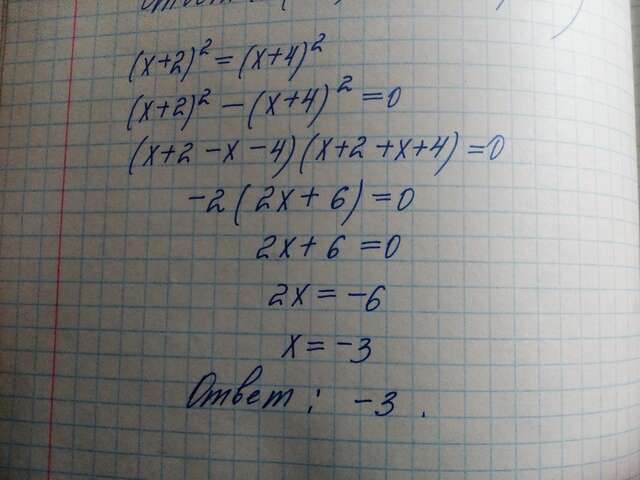 (x+2)² = (x+4)²
(x+2)² - (x+4)² = 0
(x+2-x-4)(x+2+x+4) = 0
-2(2x+6) = 0
2x+6 = 0
2x = -6
x = -3
Ответ: -3.